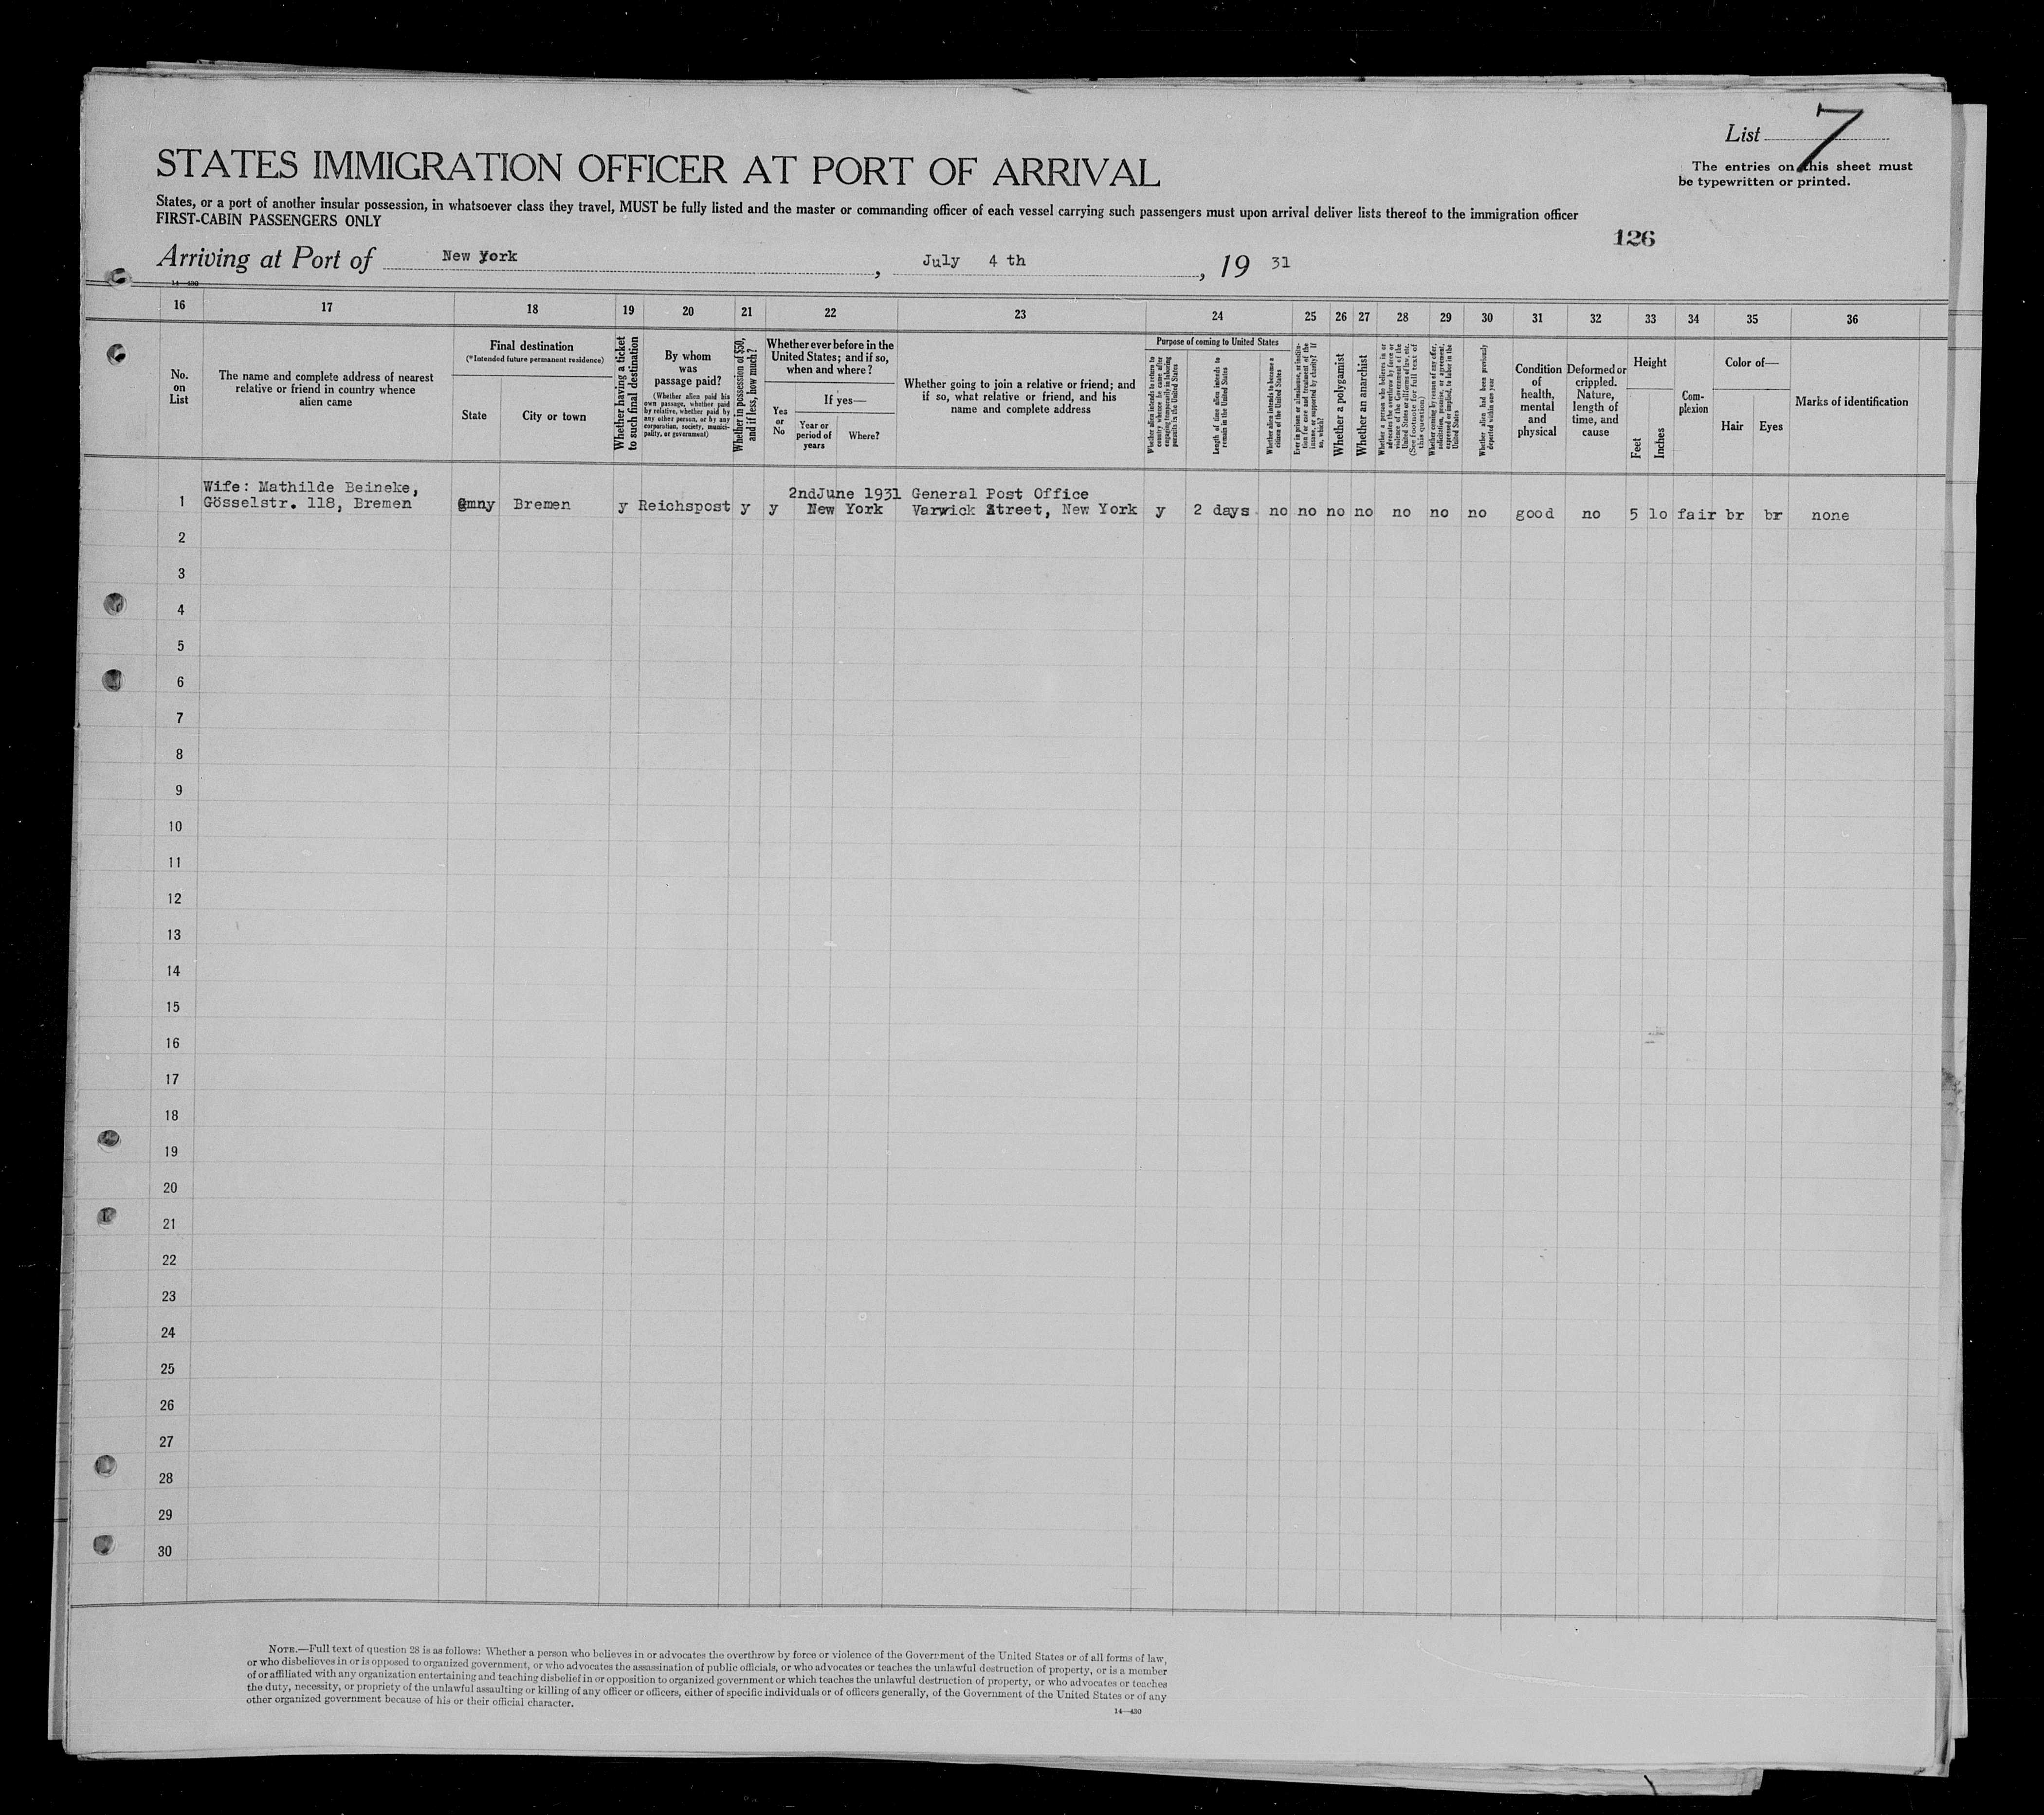 List 7
STATES IMMIGRATION OFFICER AT PORT OF ARRIVAL
The entries on this sheet must
be typewritten or printed.
States, or a port of another insular possession, in whatsoever class they travel, MUST be fully listed and the master or commanding officer of each vessel carrying such passengers must upon arrival deliver lists thereof to the immigration officer
FIRST-CABIN PASSENGERS ONLY
126
Arriving at Port of New York, July 4 th, 19 31
14—430
16 17 18 19 20 21 22 23 24 25 26 27 28 29 30 31 32 33 34 35 36
No.
on
List
The name and complete address of nearest
relative or friend in country whence
alien came
Final destination
(*Intended future permanent residence)
State
City or town
Whether having a ticket
to such final destination
By whom
was
passage paid?
(Whether alien paid his
own passage, whether paid
by relative, whether paid by
any other person, or by any
corporation, society, munici-
pality, or government)
Whether in possession of $50,
and if less, how much?
Whether ever before in the
United States; and if so,
when and where?
Yes
or
No
If yes—
Year or
period of
years
Where?
Whether going to join a relative or friend; and
if so, what relative or friend, and his
name and complete address
Purpose of coming to United States
Whether alien intends to return to
country whence he came after
engaging temporarily in laboring
pursuits in the United States
Length of time alien intends to
remain in the United States
Whether alien intends to become a
citizen of the United States
Ever in prison or almshouse, or institu-
tion for care and treatment of the
insane, or supported by charity? If
so, which?
Whether a polygamist
Whether an anarchist
Whether a person who believes in or
advocates the overthrow by force or
violence of the Government of the
United States or all forms of law, etc.
(See footnote for full text of
this question)
Whether coming by reason of any offer,
solicitation, promise, or agreement,
expressed or implied, to labor in the
United States
Whether alien had been previously
deported within one year
Condition
of
health,
mental
and
physical
Deformed or
crippled.
Nature,
length of
time, and
cause
Height
Feet
Inches
Com-
plexion
Color of—
Hair
Eyes
Marks of identification
Wife: Mathilde Beineke, 2ndJune 1931 General Post Office
1 Gösselstr. 118, Bremen Gmny Bremen y Reichspost y y New York Varwick Street, New York y 2 days no no no no no no no good no 5 lo fair br br none
2
3
4
5
6
7
8
9
10
11
12
13
14
15
16
17
18
19
20
21
22
23
24
25
26
27
28
29
30
NOTE.—Full text of question 28 is as follows: Whether a person who believes in or advocates the overthrow by force or violence of the Government of the United States or of all forms of law,
or who disbelieves in or is opposed to organized government, or who advocates the assassination of public officials, or who advocates or teaches the unlawful destruction of property, or is a member
of or affiliated with any organization entertaining and teaching disbelief in or opposition to organized government or which teaches the unlawful destruction of property, or who advocates or teaches
the duty, necessity, or propriety of the unlawful assaulting or killing of any officer or officers, either of specific individuals or of officers generally, of the Government of the United States or of any
other organized government because of his or their official character.
14—430